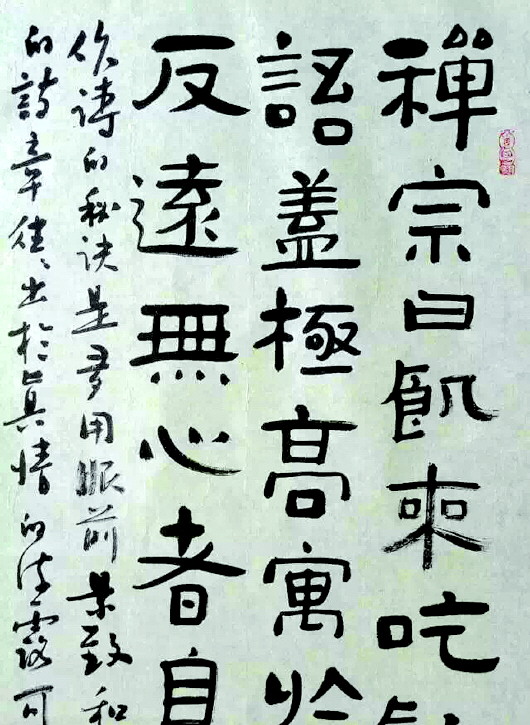 禪宗曰飢來吃
語蓋極高寓於
反遠無心者自
作詩的秘诀是多用眼前景致和
的詩章往〻出於真情的流露可